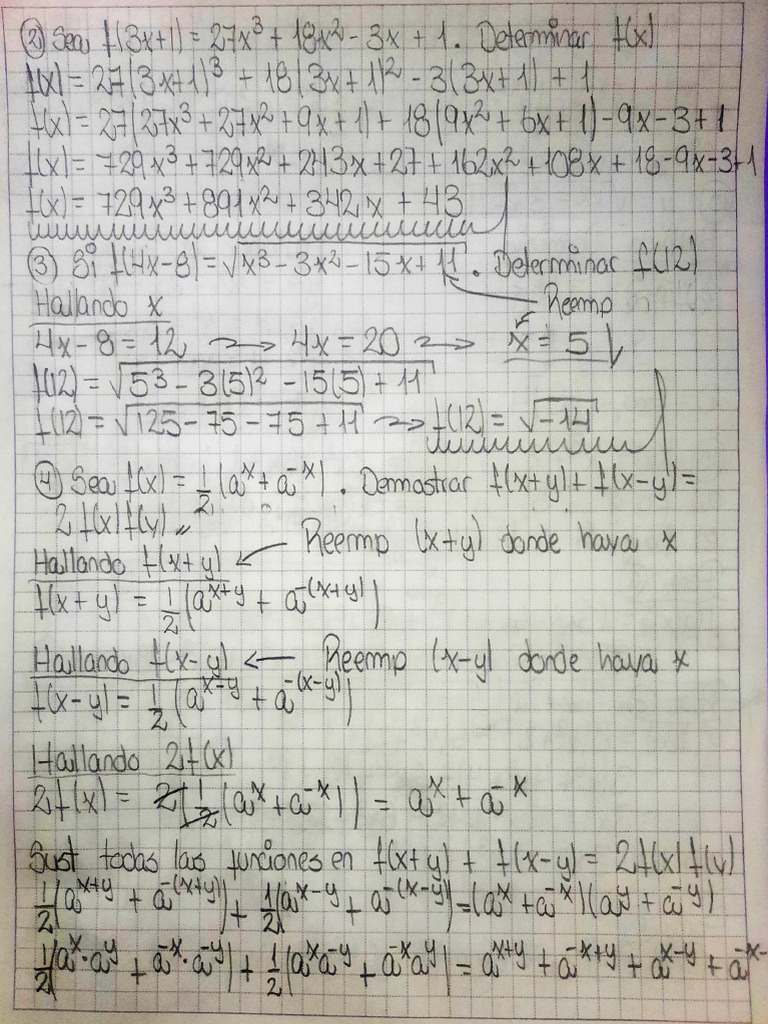 ② Sea f(3x+1) = 27x³ + 18x² - 3x + 1. Determinar f(x)
f(x) = 27(3x+1)³ + 18(3x+1)² - 3(3x+1) + 1
f(x) = 27(27x³ + 27x² + 9x + 1) + 18(9x² + 6x + 1) - 9x - 3 + 1
f(x) = 729x³ + 729x² + 243x + 27 + 162x² + 108x + 18 - 9x - 3 + 1
f(x) = 729x³ + 891x² + 342x + 43
③ Si f(4x-8) = √(x³ - 3x² - 15x + 11). Determinar f(12)
Hallando x Reemp
4x - 8 = 12 → 4x = 20 → x = 5
f(12) = √(5³ - 3(5)² - 15(5) + 11)
f(12) = √(125 - 75 - 75 + 11) → f(12) = √(-14)
④ Sea f(x) = 1/2 (aˣ + a⁻ˣ). Demostrar f(x+y) + f(x-y) =
2f(x)f(y) //
Hallando f(x+y) ← Reemp (x+y) donde haya x
f(x+y) = 1/2 (a^(x+y) + a^(-(x+y)))
Hallando f(x-y) ← Reemp (x-y) donde haya x
f(x-y) = 1/2 (a^(x-y) + a^(-(x-y)))
Hallando 2f(x)
2f(x) = 2(1/2 (aˣ + a⁻ˣ)) = aˣ + a⁻ˣ
Sust todas las funciones en f(x+y) + f(x-y) = 2f(x)f(y)
1/2 (a^(x+y) + a^(-(x+y))) + 1/2 (a^(x-y) + a^(-(x-y))) = (aˣ + a⁻ˣ)(a^y + a^(-y))
1/2 (aˣ·a^y + a⁻ˣ·a^(-y)) + 1/2 (aˣa^(-y) + a⁻ˣa^y) = a^(x+y) + a^(-x+y) + a^(x-y) + a^(-x-